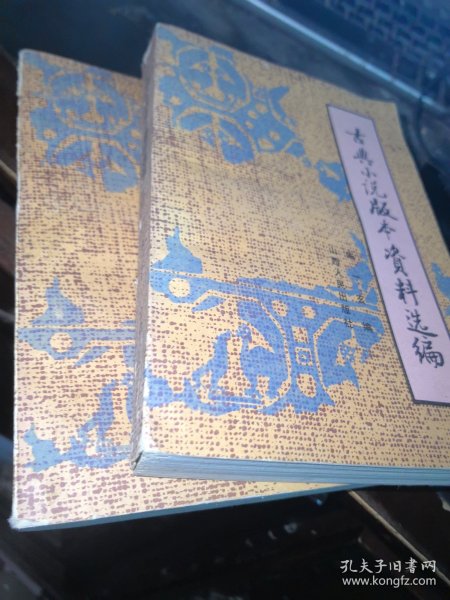 古典小说版本资料选编
山西人民出版社
孔夫子旧书网
www.kongfz.com